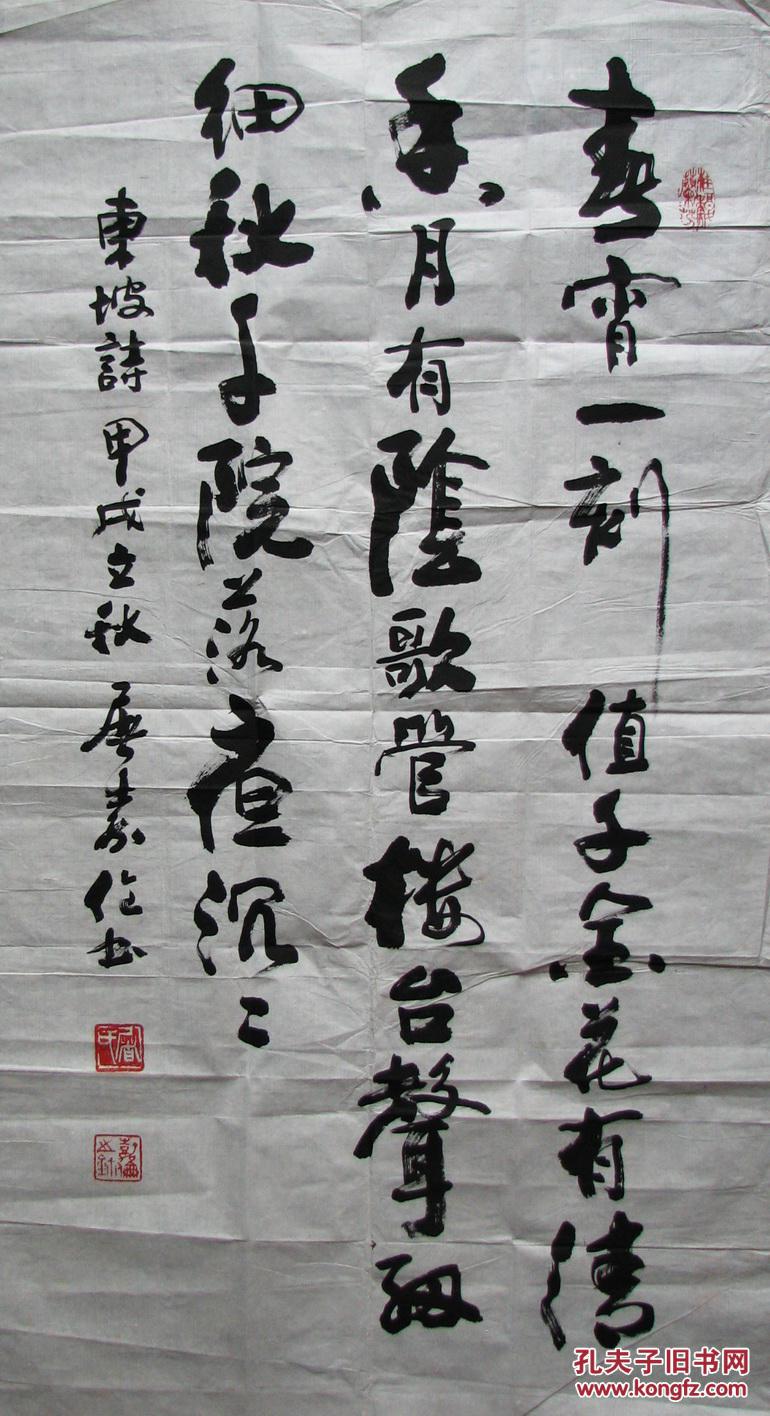 春宵一刻值千金花有清
香月有陰歌管楼台聲細
細秋千院落夜沉々
東坡詩 甲戌立秋 書
孔夫子旧书网
www.kongfz.com